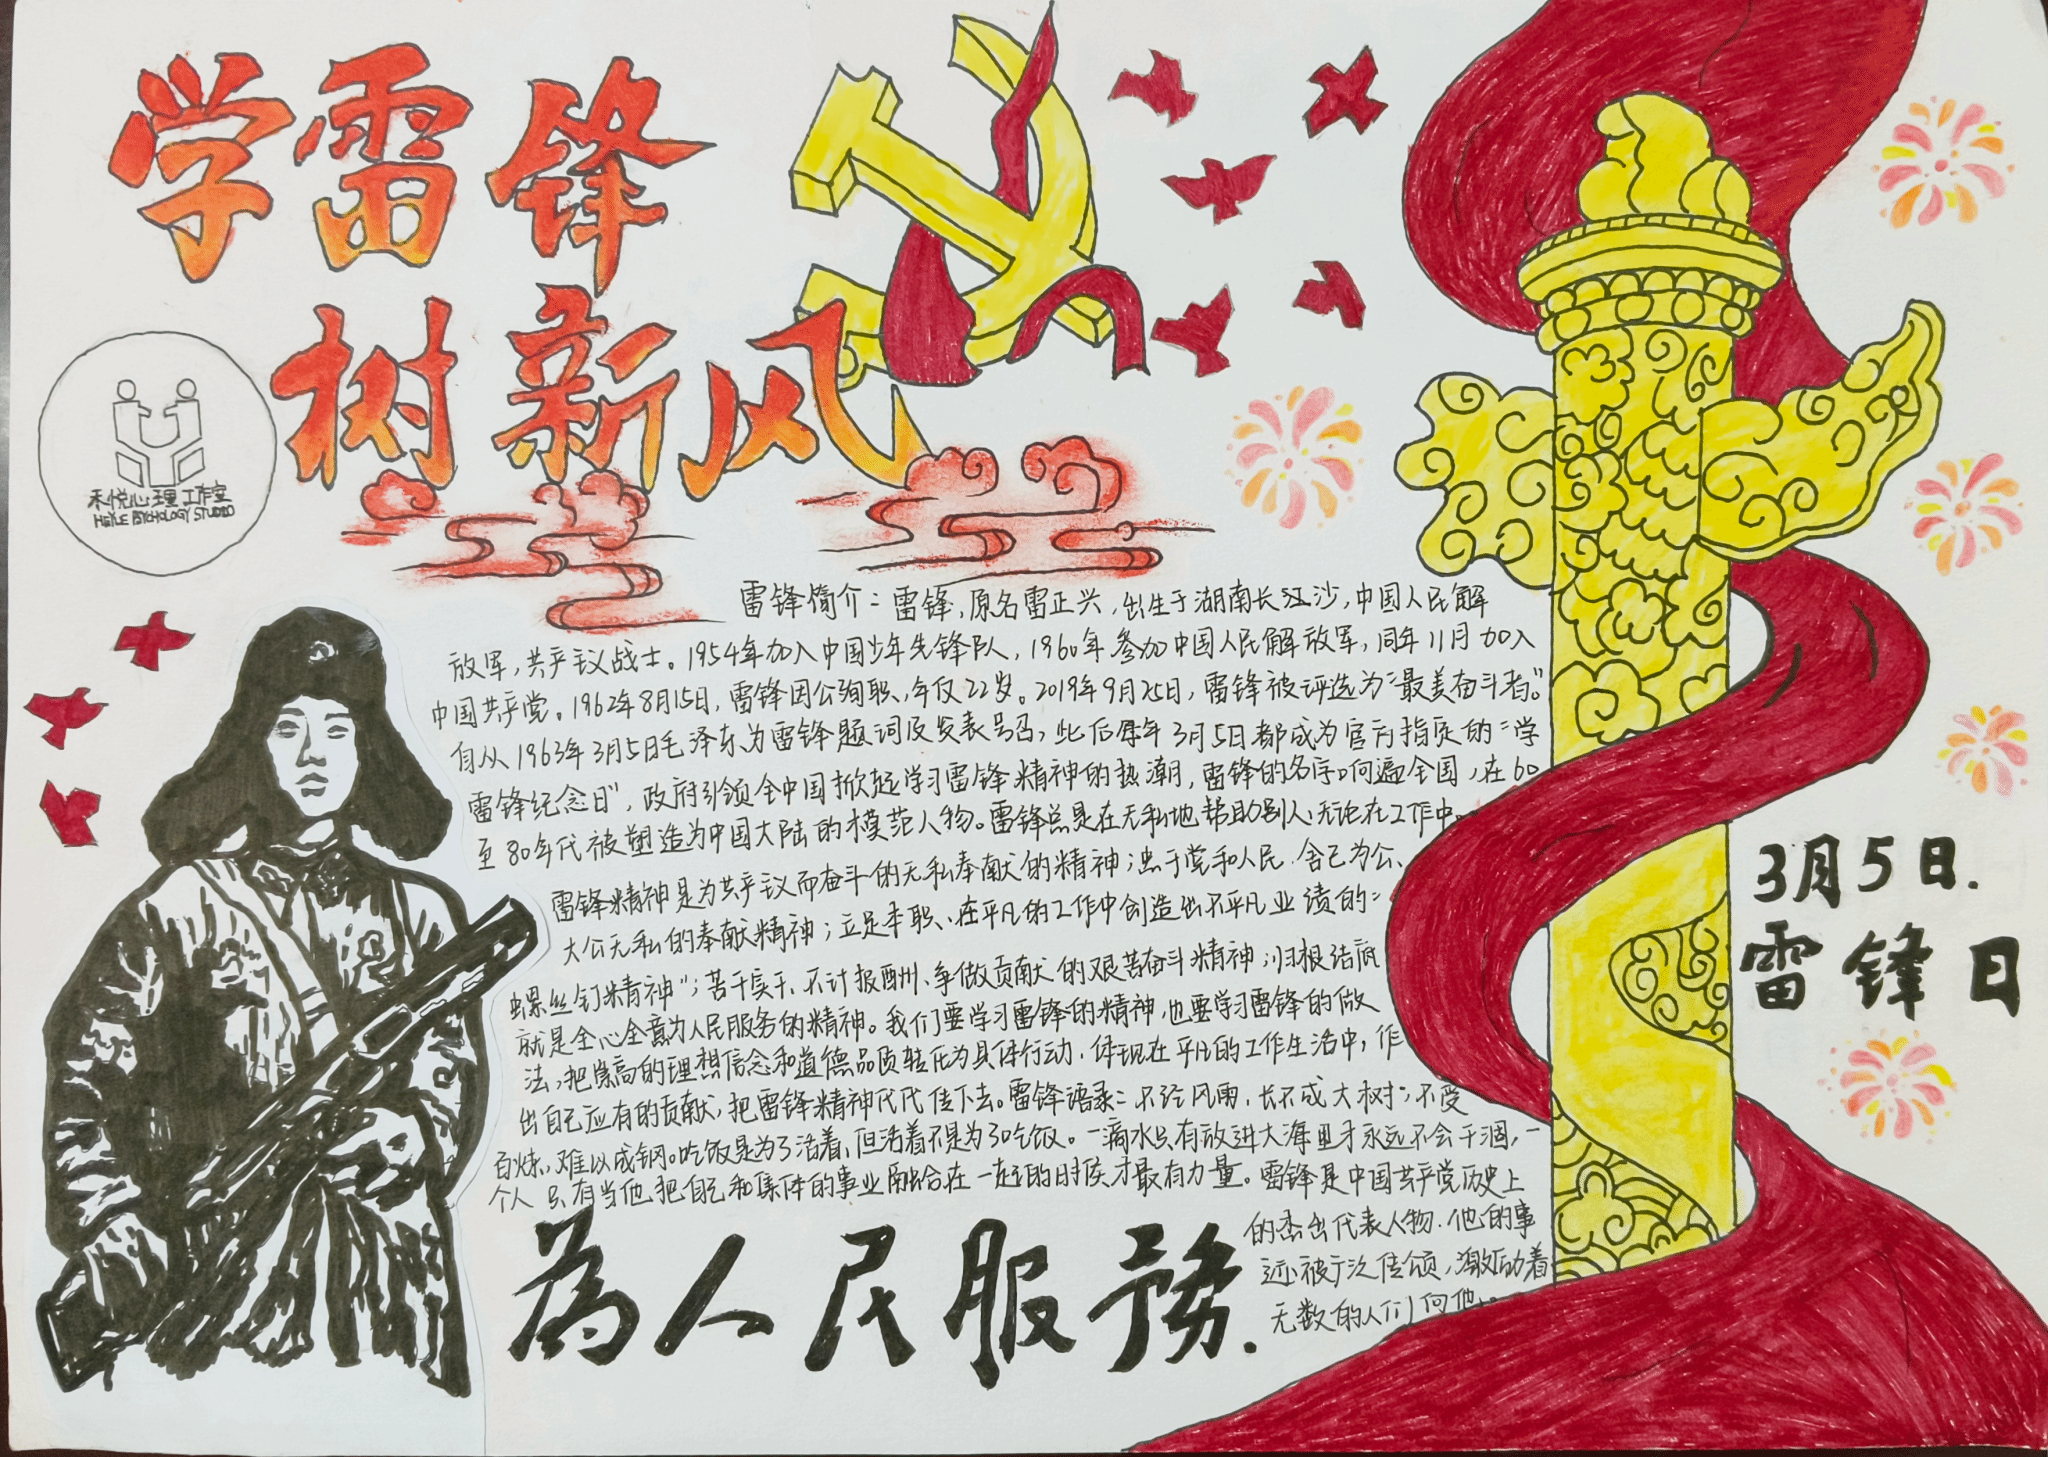 学雷锋
树新风
禾悦心理工作室
HEYUE PSYCHOLOGY STUDIO
雷锋简介：雷锋，原名雷正兴，出生于湖南长江沙，中国人民解
放军，共产议战士。1954年加入中国少年先锋队，1960年参加中国人民解放军，同年11月加入
中国共产党。1962年8月15日，雷锋因公殉职，年仅22岁。2019年9月25日，雷锋被评选为“最美奋斗者。”
自从1963年3月5日毛泽东为雷锋题词及发表号召，此后每年3月5日都成为官方指定的“学
雷锋纪念日”，政府引领全中国掀起学习雷锋精神的热潮，雷锋的名字响遍全国，在60
至80年代被塑造为中国大陆的模范人物。雷锋总是在无私地帮助别人，无论在工作中
雷锋精神是为共产议而奋斗的无私奉献的精神；忠于党和人民、舍己为公、
大公无私的奉献精神；立足本职、在平凡的工作中创造出不平凡业绩的“
螺丝钉精神”；苦干实干、不计报酬、争做贡献的艰苦奋斗精神；归根结底
就是全心全意为人民服务的精神。我们要学习雷锋的精神，也要学习雷锋的做
法，把崇高的理想信念和道德品质转化为具体行动，体现在平凡的工作生活中，作
出自己应有的贡献，把雷锋精神代代传下去。雷锋语录：不经风雨，长不成大树；不受
百炼，难以成钢。吃饭是为了活着，但活着不是为了吃饭。一滴水只有放进大海里才永远不会干涸，一
个人只有当他把自己和集体的事业融合在一起的时候才最有力量。雷锋是中国共产党历史上
的杰出代表人物，他的事
迹被广泛传颂，激励着
无数的人们向他
为人民服務.
3月5日.
雷锋日